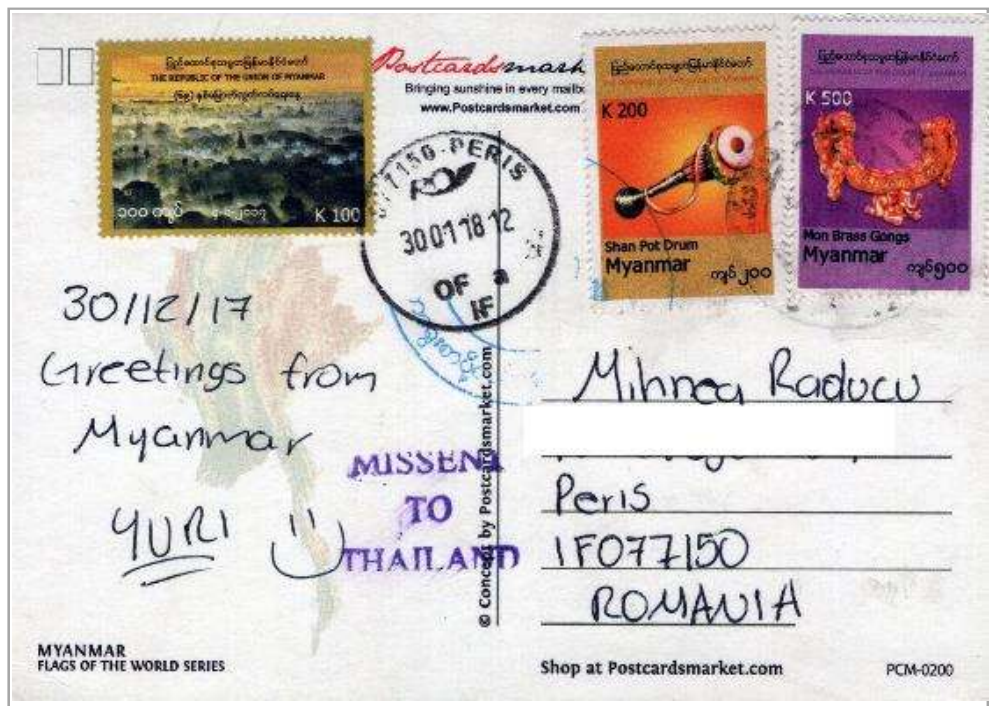 ပြည်ထောင်စုသမ္မတမြန်မာနိုင်ငံတော်
THE REPUBLIC OF THE UNION OF MYANMAR
၁၀၀ ကျပ်
K 100
Postcardsmark
Bringing sunshine in every mailbo
www.Postcardsmarket.com
ပြည်ထောင်စုသမ္မတမြန်မာနိုင်ငံတော်
K 200
Shan Pot Drum
Myanmar
ကျပ်၂၀၀
ပြည်ထောင်စုသမ္မတမြန်မာနိုင်ငံတော်
K 500
Mon Brass Gongs
Myanmar
ကျပ်၅၀၀
077150-PERIS
30.01 18 12
OF a
IF
30/12/17
Greetings from
Myanmar
YURI
MISSENT
TO
THAILAND
© Concept by Postcardsmarket.com
Mihnea Raducu
Peris
IF077150
ROMANIA
MYANMAR
FLAGS OF THE WORLD SERIES
Shop at Postcardsmarket.com
PCM-0200